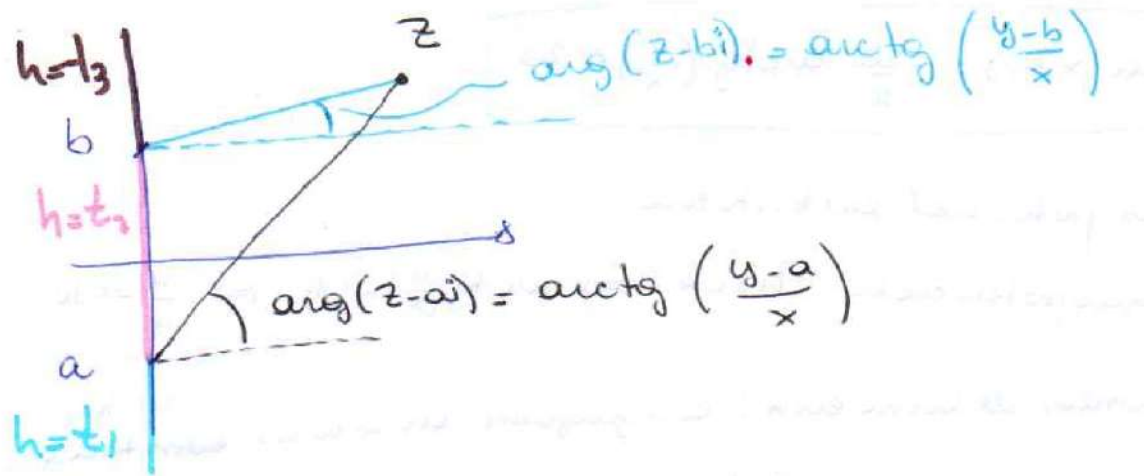 z
h=t₃
arg(z-bi). = arctg (y-b/x)
b
h=t₂
a
arg(z-ai) = arctg (y-a/x)
h=t₁